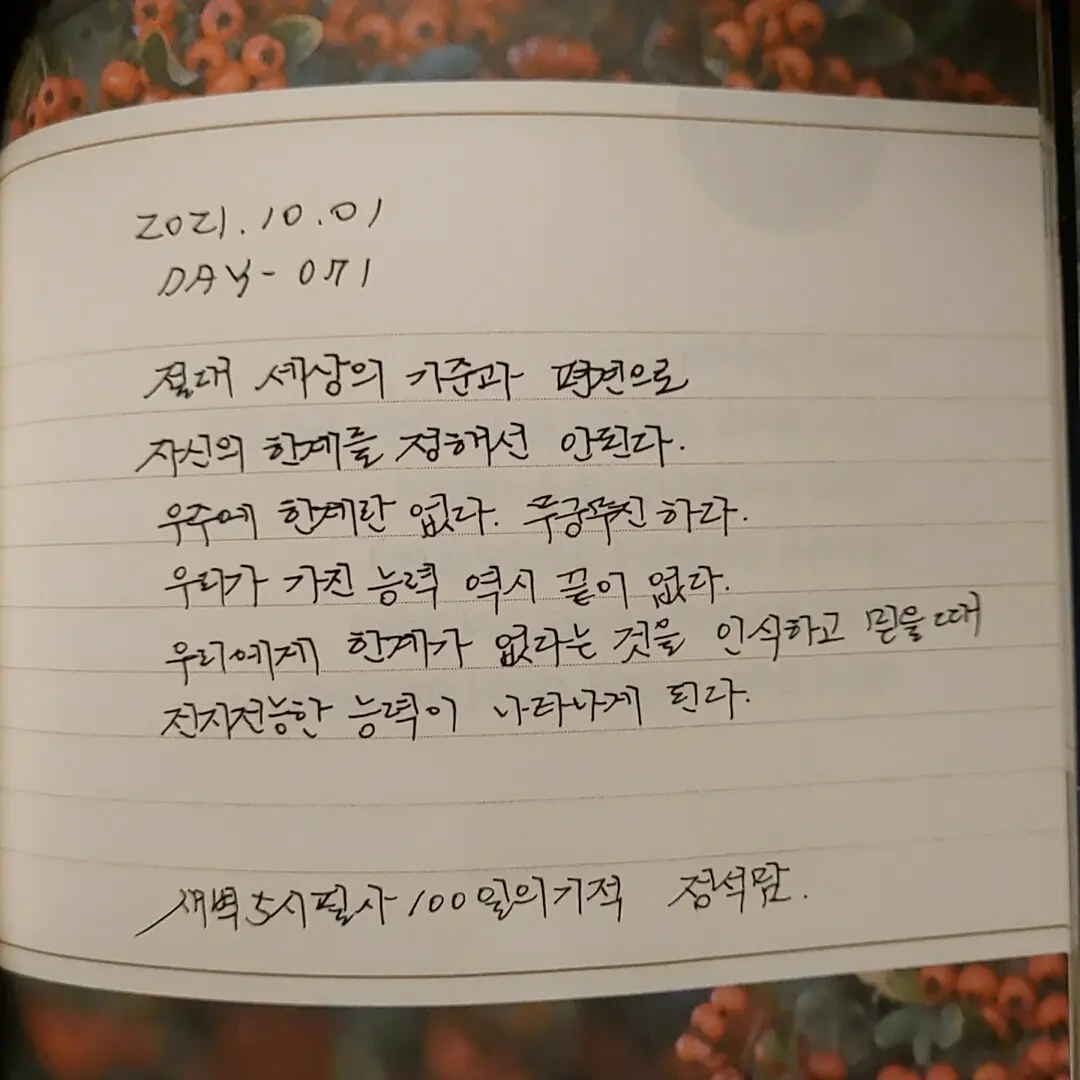 2021.10.01
DAY-071
절대 세상의 기준과 편견으로
자신의 한계를 정해선 안된다.
우주에 한계란 없다. 무궁무진하다.
우리가 가진 능력 역시 끝이 없다.
우리에게 한계가 없다는 것을 인식하고 믿을때
전지전능한 능력이 나타나게 된다.
새벽5시필사100일의기적 정석맘.